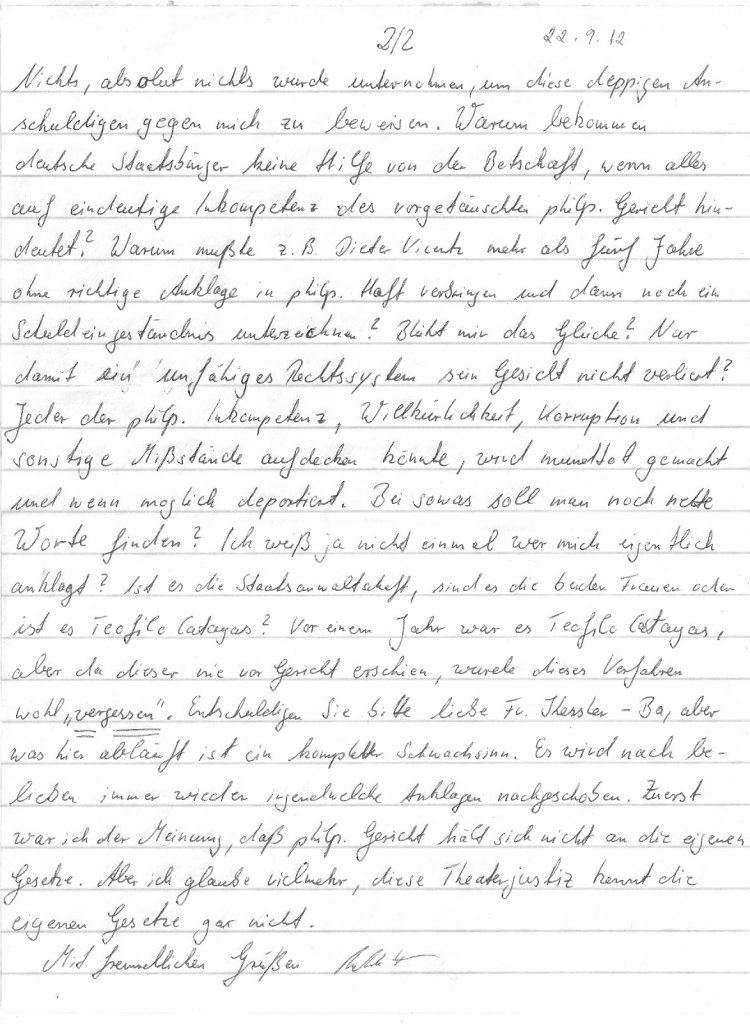 2/2 22.9.12
Nichts, absolut nichts wurde unternohmen, um diese deppigen An-
schuldigen gegen mich zu beweisen. Warum bekommen
deutsche Staatsbürger keine Hilfe von der Botschaft, wenn alles
auf eindeutige Inkompetenz des vorgetäuschten philp. Gericht hin-
deutet? Warum mußte z.B. Dieter Vicentz mehr als fünf Jahre
ohne richtige Anklage in philp. Haft verbringen und dann noch ein
Schuldeingeständnis unterzeichnen? Blüht mir das Gleiche? Nur
damit ein unfähiges Rechtssystem sein Gesicht nicht verliert?
Jeder der philp. Inkompetenz, Willkürlichkeit, Korruption und
sonstige Mißstände aufdecken könnte, wird mundtot gemacht
und wenn möglich deportiert. Bei sowas soll man noch nette
Worte finden? Ich weiß ja nicht einmal wer mich eigentlich
anklagt? Ist es die Staatsanwaltschaft, sind es die beiden Frauen oder
ist es Teofilo Catayas? Vor einem Jahr war es Teofilo Catayas,
aber da dieser nie vor Gericht erschien, wurde dieses Verfahren
wohl „vergessen“. Entschuldigen Sie bitte liebe Fr. - Ba, aber
was hier abläuft ist ein kompletter Schwachsinn. Es wird nach be-
lieben immer wieder irgendwelche Anklagen nachgeschoben. Zuerst
war ich der Meinung, daß philp. Gericht hält sich nicht an die eigenen
Gesetze. Aber ich glaube vielmehr, diese Theaterjustiz kennt die
eigenen Gesetze gar nicht.
Mit freundlichen Grüßen